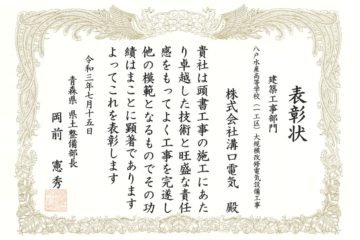 表彰状
建築工事部門
八戸水産高等学校(一工区)大規模改修電気設備工事
株式会社溝口電気 殿
貴社は頭書工事の施工にあた
り卓越した技術と旺盛な責任
感をもってよく工事を完遂し
他の模範となるものでその功
績はまことに顕著であります
よってこれを表彰します
令和三年七月十五日
青森県 県土整備部長
岡前 憲秀